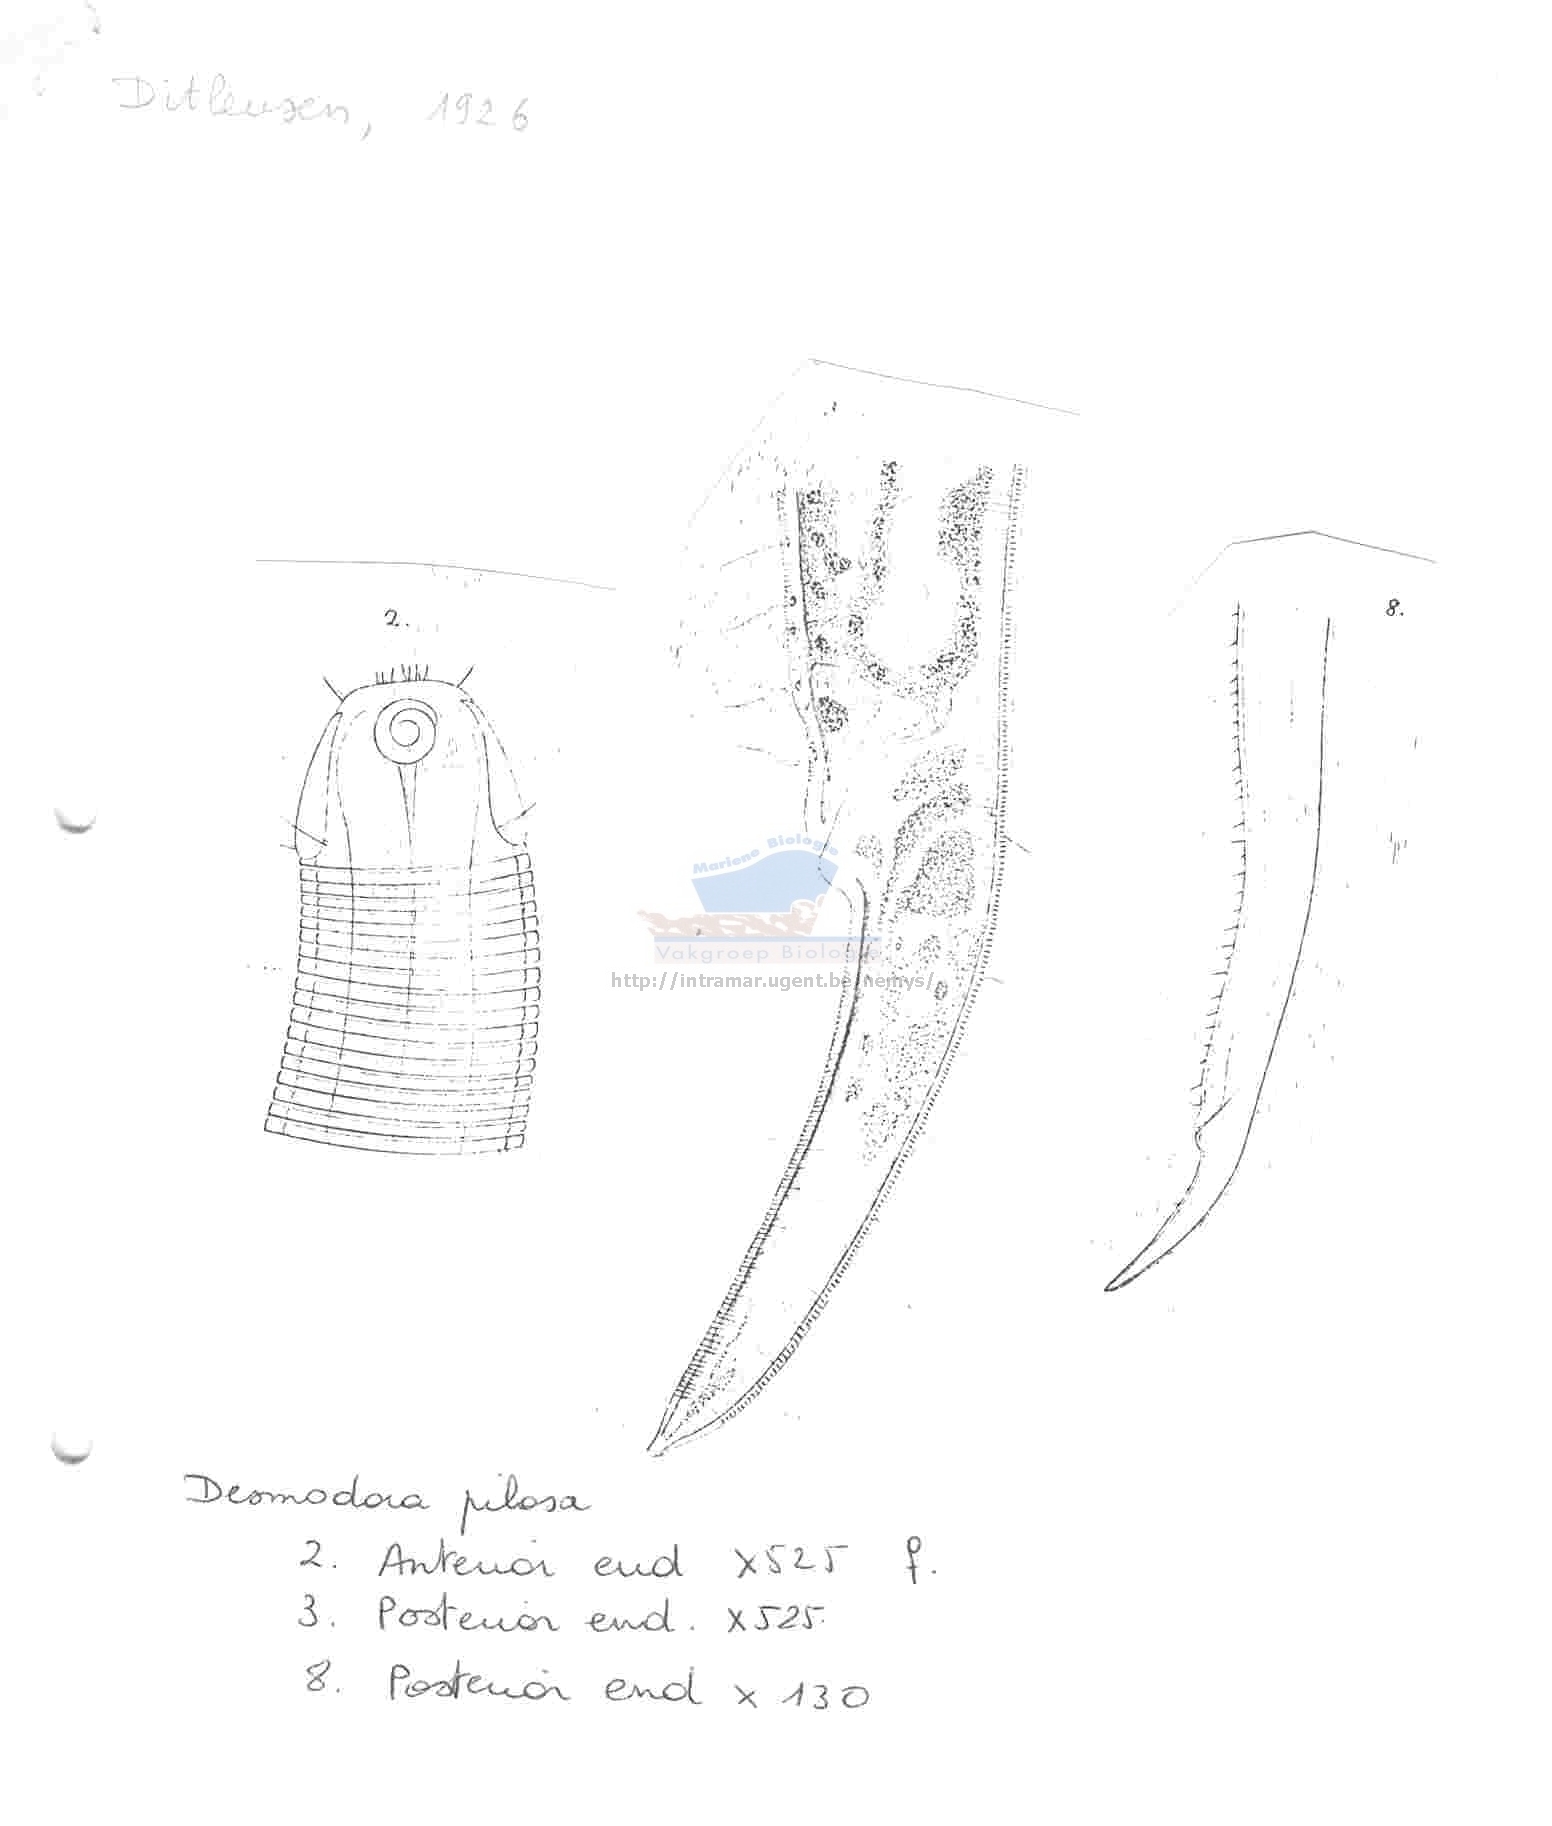 Ditlevsen, 1926
2.
8.
Mariene Biologie
Vakgroep Biologie
http://intramar.ugent.be/nemys/
Desmodora pilosa
2. Anterior end x525 f.
3. Posterior end. x525.
8. Posterior end x 130